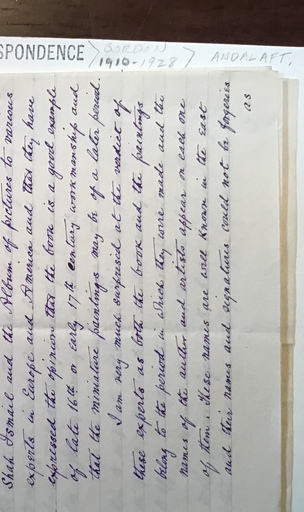 Shah Ismail and the Album of pictures to various
experts in Europe and America and that they have
expressed the opinion that the book is a good example
of late 16th or early 17th century workmanship and
that the miniature paintings may be of a later period.
I am very much surprised at the verdict of
these experts as both the book and the paintings
belong to the period in which they were made and the
names of the author and artists appear on each one
of them. These names are well known in the East
and their names and signatures could not be forgeries
as
SPONDENCE
1910-1928
ANDALAFT,